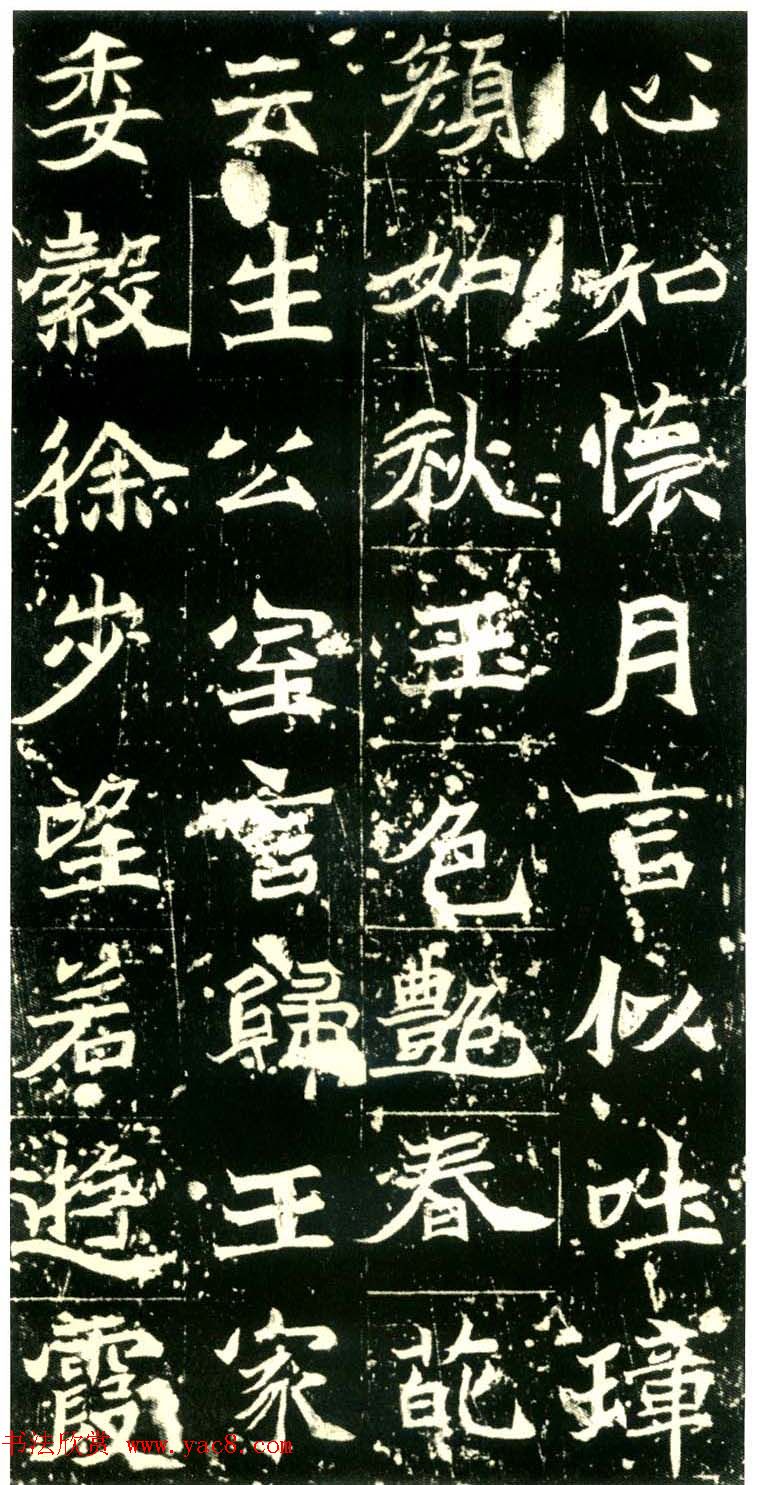 心如懷月言似吐璋
顏如秋玉色艷春葩
云生公室言歸王家
委縠徐步望若遊霞
书法欣赏 www.yac8.com